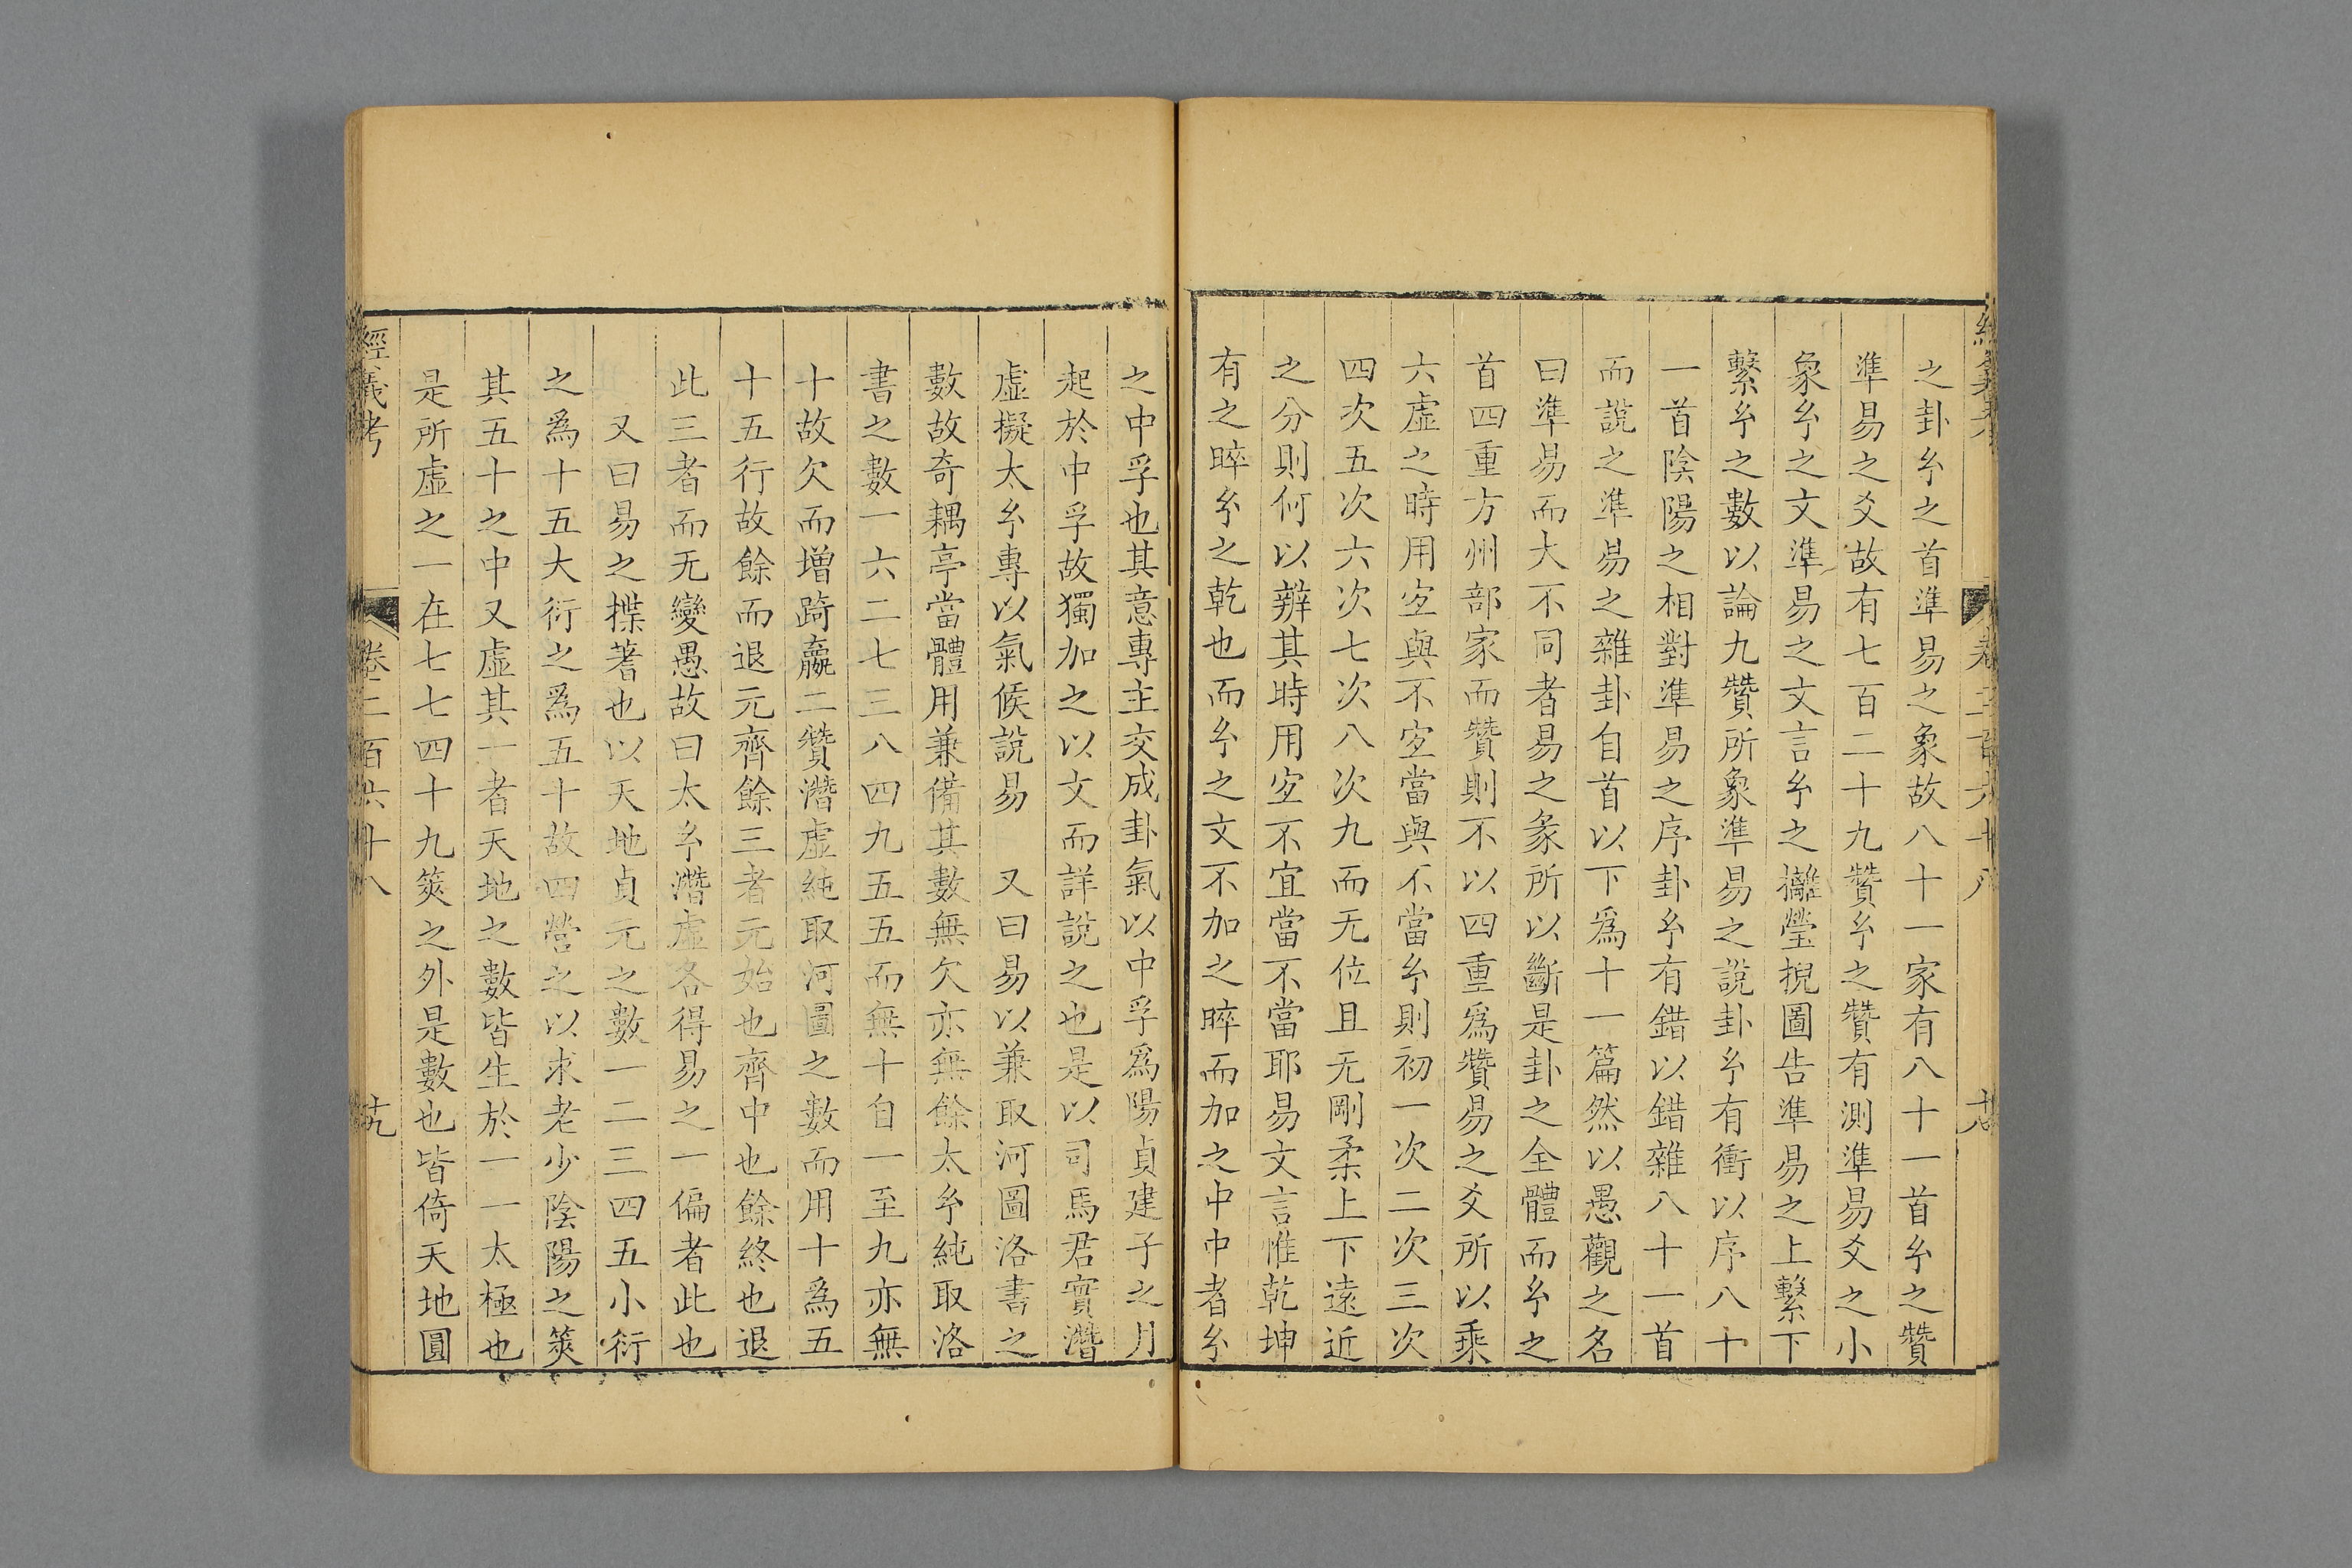 之卦𤣥之首準易之象故八十一家有八十一首𤣥之贊
準易之爻故有七百二十九贊𤣥之贊有測準易爻之小
象𤣥之文準易之文言𤣥之攡瑩掜圖告準易之上繫下
繫𤣥之數以論九贊所象準易之說卦𤣥有衝以序八十
一首陰陽之相對準易之序卦𤣥有錯以錯雜八十一首
而說之準易之雜卦自首以下爲十一篇然以愚觀之名
曰準易而大不同者易之彖所以斷是卦之全體而𤣥之
首四重方州部家而贊則不以四重爲贊易之爻所以乘
六虛之時用宐與不宐當與不當𤣥則初一次二次三次
四次五次六次七次八次九而无位且无剛柔上下遠近
之分則何以辨其時用宐不宜當不當耶易文言惟乾坤
有之睟𤣥之乾也而𤣥之文不加之睟而加之中中者𤣥
之中孚也其意專主交成卦氣以中孚爲陽貞建子之月
起於中孚故獨加之以文而詳說之也是以司馬君實潛
虛擬太𤣥專以氣候說易　又曰易以兼取河圖洛書之
數故奇耦亭當體用兼備其數無欠亦無餘太𤣥純取洛
書之數一六二七三八四九五五而無十自一至九亦無
十故欠而增踦嬴二贊潛虛純取河圖之數而用十爲五
十五行故餘而退元齊餘三者元始也齊中也餘終也退
此三者而无變愚故曰太𤣥潛虛各得易之一偏者此也
又曰易之揲蓍也以天地貞元之數一二三四五小衍
之爲十五大衍之爲五十故四營之以求老少陰陽之筴
其五十之中又虛其一者天地之數皆生於一一太極也
是所虛之一在七七四十九筴之外是數也皆倚天地圓
經義考　卷二百六十八　十九